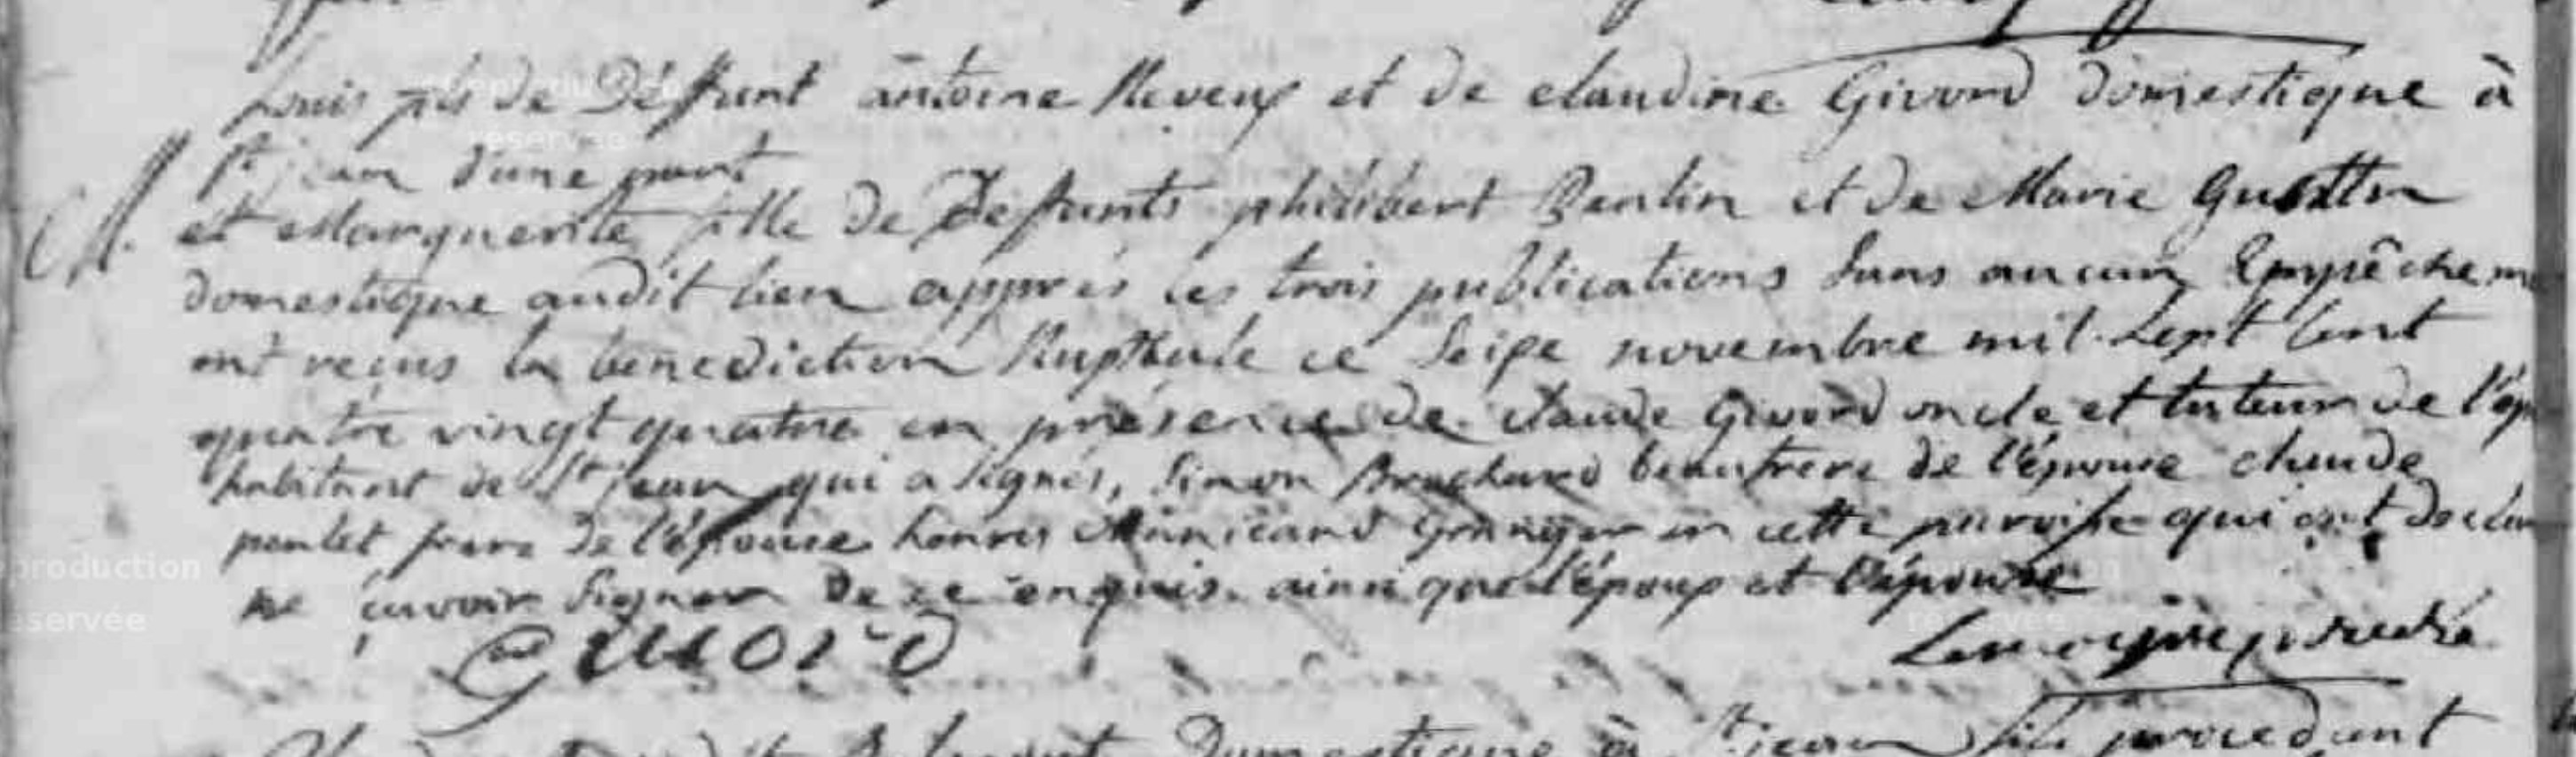 Louis fils de Déffunt antoine Neveux et de claudine Givord domestique à
St jean d'une part
M. et Marguerite fille de Deffunts philibert et de Marie
domestique audit lieu apprés les trois publications Sans aucun Empêchem
ont reçus la bénédiction Nuptiale ce Seize novembre mil Sept Cent
quatre vingt quatre en présence de claude Givord oncle et tuteur de l'ép
habitant de St jean qui a signés, Simon beaufrere de l'épouse claude
frere de l'épouse en cette paroisse qui ont déclar
ne savoir Signer de ce enquis. ainsi que l'époux et l'épouse
Givord
Lemoyne, prêtre
Domestique à St jean fils procedant